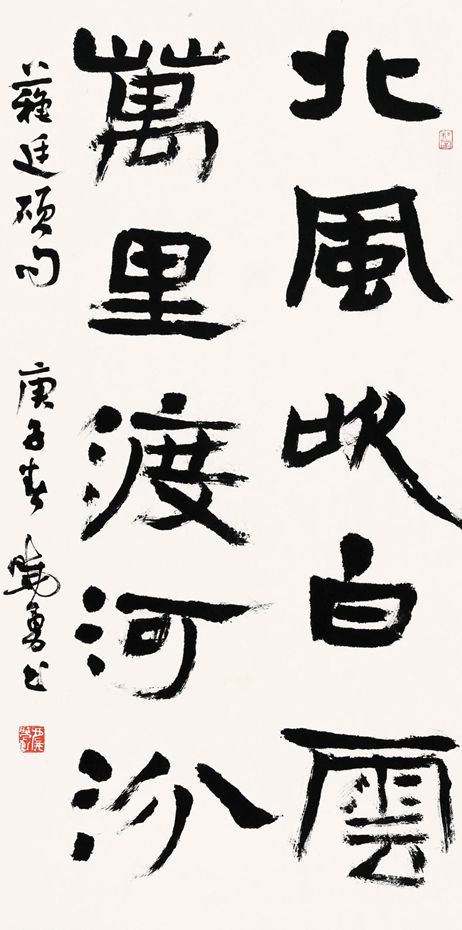 北風吹白雲
萬里渡河汾
蘇廷碩句 庚子春 曉勇书